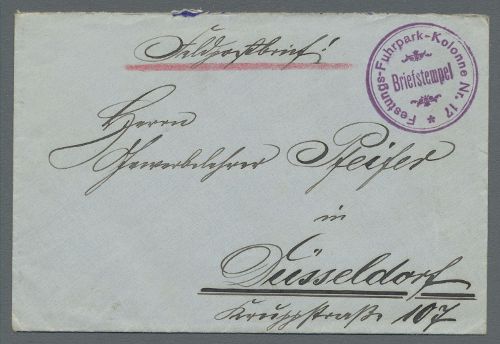 Feldpostbrief!
Festungs-Fuhrpark-Kolonne Nr. 17 *
Briefstempel
Herrn
Gewerbelehrer Pfeifer
in
Düsseldorf
Kruppstraße 107